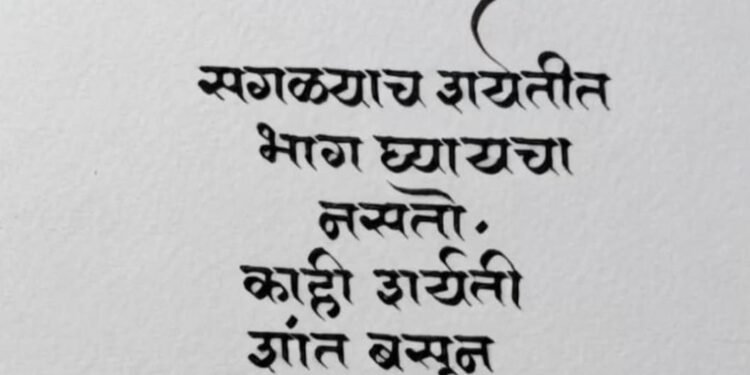 सगळयाच शर्यतीत
भाग घ्यायचा
नसतो.
काही शर्यती
शांत बसून